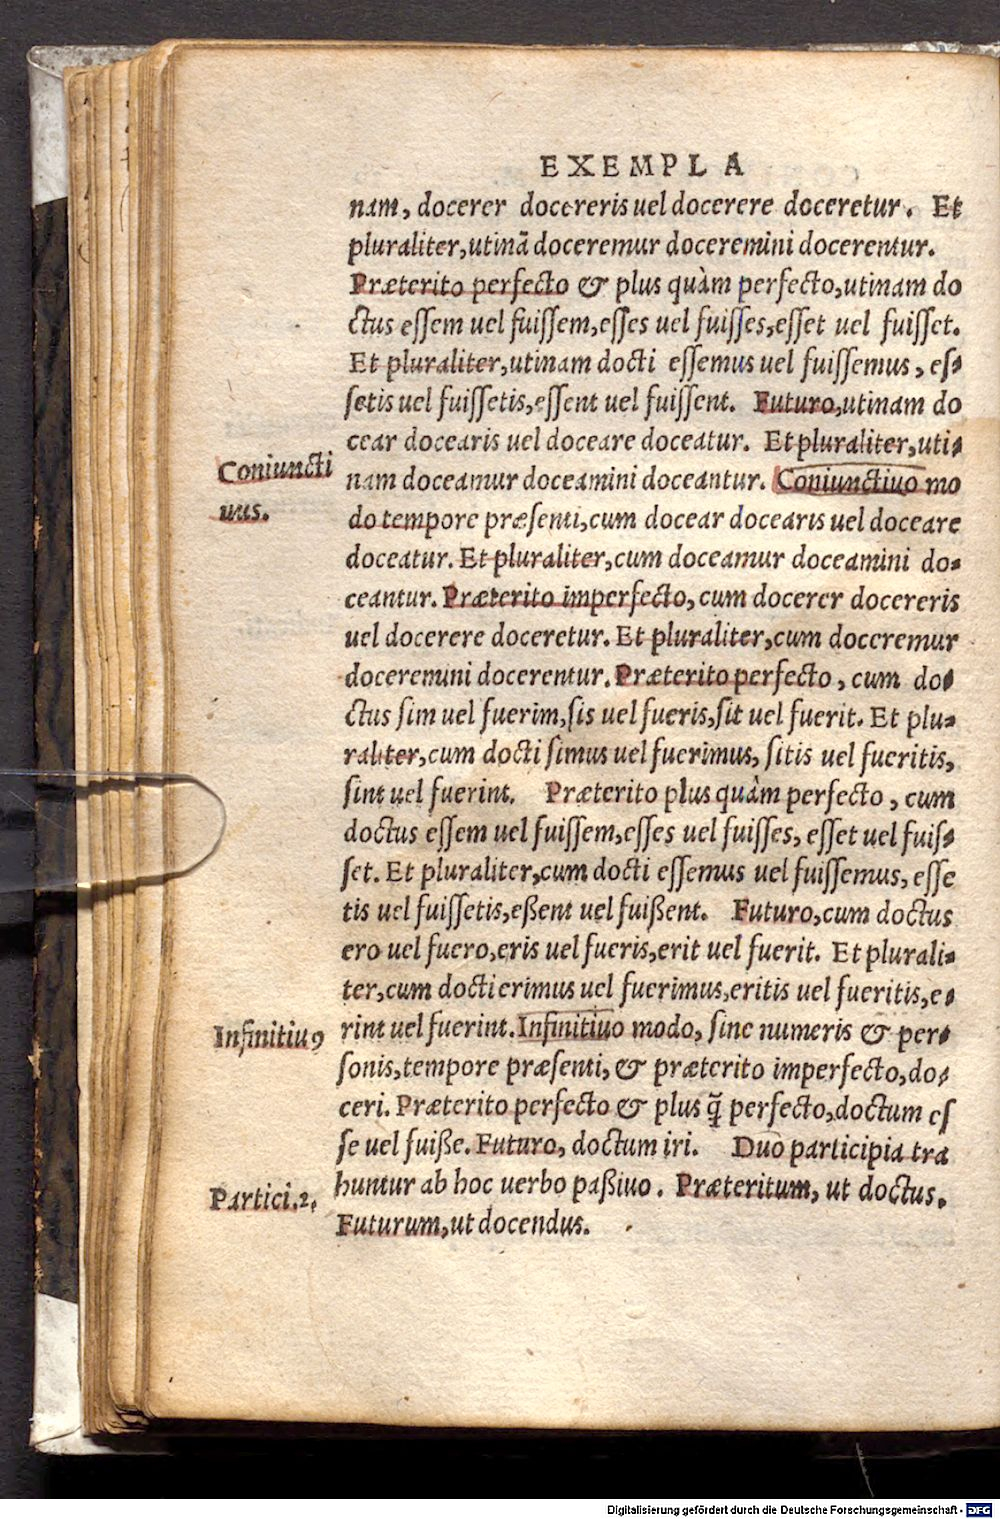 EXEMPLA
nam, docerer docereris uel docerere doceretur. Et
pluraliter, utinā doceremur doceremini docerentur.
Præterito perfecto & plus quàm perfecto, utinam do
ctus essem uel fuissem, esses uel fuisses, esset uel fuisset.
Et pluraliter, utinam docti essemus uel fuissemus, es-
setis uel fuissetis, essent uel fuissent. Futuro, utinam do
cear docearis uel doceare doceatur. Et pluraliter, uti-
Coniuncti
nam doceamur doceamini doceantur. Coniunctiuo mo
uus.
do tempore præsenti, cum docear docearis uel doceare
doceatur. Et pluraliter, cum doceamur doceamini do-
ceantur. Præterito imperfecto, cum docerer docereris
uel docerere doceretur. Et pluraliter, cum doceremur
doceremini docerentur. Præterito perfecto, cum do-
ctus sim uel fuerim, sis uel fueris, sit uel fuerit. Et plu-
raliter, cum docti simus uel fuerimus, sitis uel fueritis,
sint uel fuerint. Præterito plus quàm perfecto, cum
doctus essem uel fuissem, esses uel fuisses, esset uel fuis-
set. Et pluraliter, cum docti essemus uel fuissemus, esse
tis uel fuissetis, eßent uel fuißent. Futuro, cum doctus
ero uel fuero, eris uel fueris, erit uel fuerit. Et plurali-
ter, cum docti erimus uel fuerimus, eritis uel fueritis, e-
Infinitiuꝰ
rint uel fuerint. Infinitiuo modo, sine numeris & per-
sonis, tempore præsenti, & præterito imperfecto, do-
ceri. Præterito perfecto & plus q̃ perfecto, doctum es
se uel fuiße. Futuro, doctum iri. Duo participia tra
Partici.2.
huntur ab hoc uerbo paßiuo. Præteritum, ut doctus.
Futurum, ut docendus.
Digitalisierung gefördert durch die Deutsche Forschungsgemeinschaft - DFG